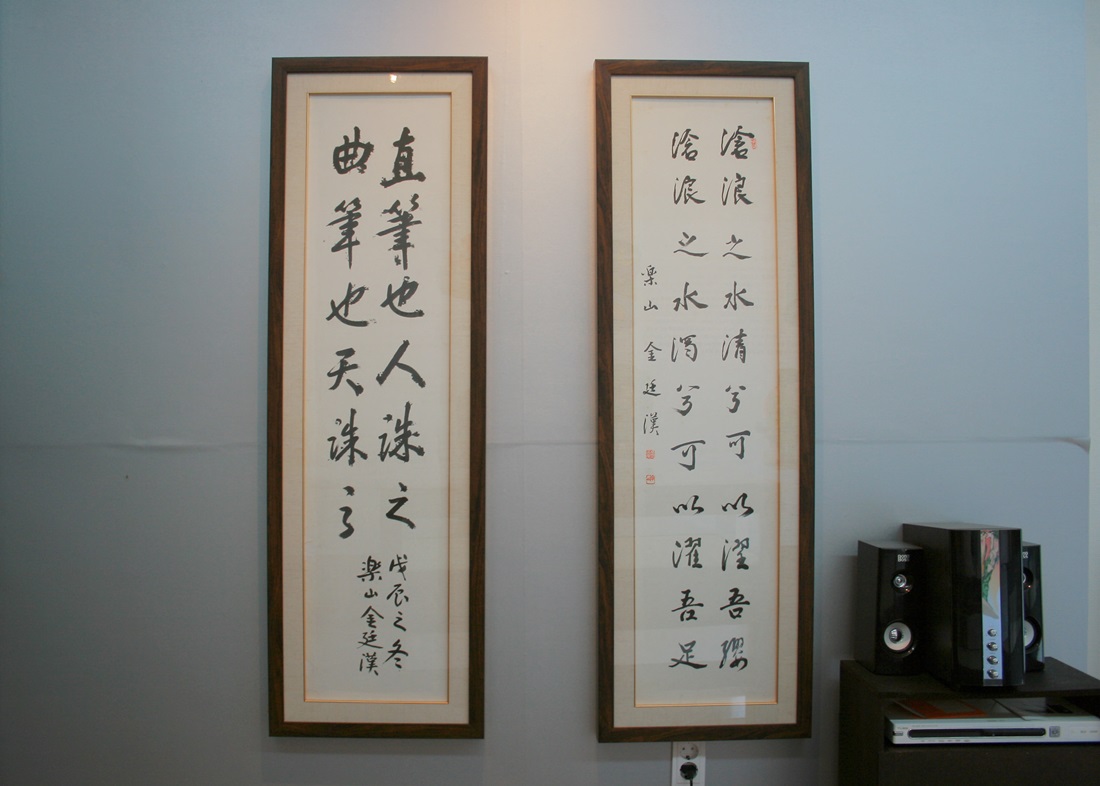 直筆也人誅之
曲筆也天誅之
戊辰之冬
楽山金廷漢
滄浪之水清兮可以濯吾纓
滄浪之水濁兮可以濯吾足
楽山 金廷漢